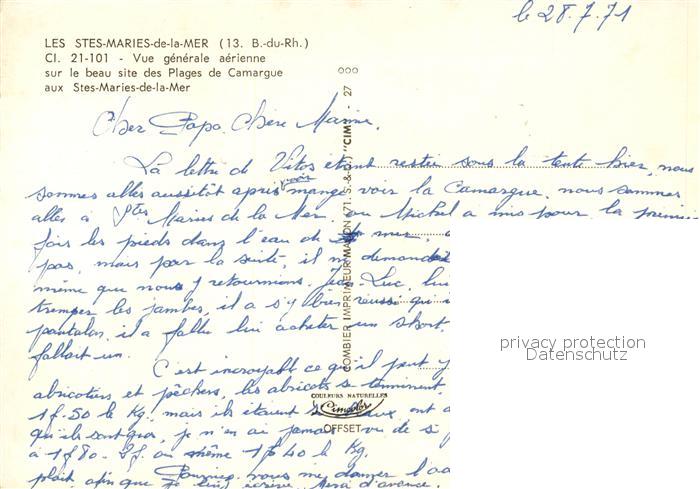 le 28.7.71
LES STES-MARIES-de-la-MER (13. B.-du-Rh.)
Cl. 21-101 - Vue générale aérienne
sur le beau site des Plages de Camargue
aux Stes-Maries-de-la-Mer
COMBIER IMPRIMEUR MACON (71. S.-&-L.) "CIM" - 27
Cher Papa, Chère Mamie,
La lettre de étant restée sous la tente hier, nous
sommes allés aussitôt après avoir mangé voir la Camargue. nous sommes
allés à Stes Maries de la Mer, ou Michel a mis pour la premi
fois les pieds dans l'eau de la mer,
pas, mais par la suite, il m demandait
même que nous y retournions. Jean-Luc, lui
tremper les jambes, il a s'y bien réussi qu'i
pantalon, il a fallu lui acheter un short,
fallait un.
C'est incroyable ce qu'il peut y
abricotiers et pêchers, les abricots se terminent,
1f.50 le Kg, mais ils étaient ont a
qu'ils sont gros, je n'en ai jamais vu de s
à 1f80. 2f. ou même 1f40 le Kg.
Pourriez vous me donner l'ad
plait, afin que je leur écrive. Merci d'avance.
COULEURS NATURELLES
Cimcolor
OFFSET
privacy protection
Datenschutz